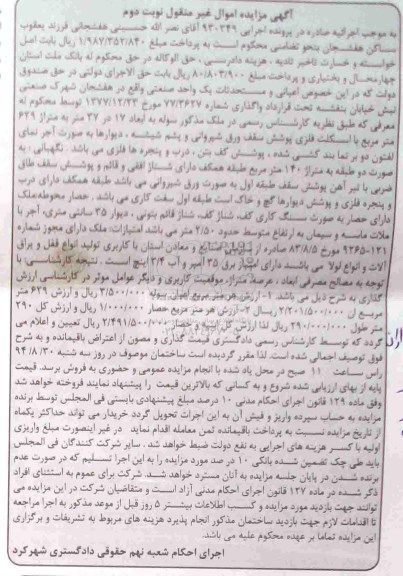 آگهی مزایده اموال غیر منقول نوبت دوم
به موجب اجرائیه صادره در پرونده اجرایی ۹۳۰۳۴۹ آقای نصر الله حسینی هفشجانی فرزند یعقوب
ساکن هفشجان بنحو تضامنی محکوم است به پرداخت مبلغ ۱/۹۸۷/۳۵۲/۸۴۰ ریال بابت اصل
خواسته و خسارت تاخیر تادیه ، هزینه دادرسی ، حق الوکاله در حق محکوم له بانک ملت استان
چهارمحال و بختیاری و پرداخت مبلغ ۸۰/۸۰۳/۹۰۰ ریال بابت حق الاجرای دولتی در حق صندوق
دولت که در این خصوص اعیانی و مستحدثات یک واحد صنعتی واقع در هفشجان شهرک صنعتی
نبش خیابان بنفشه تحت قرارداد واگذاری شماره ۷۷/۳۶۲۷ مورخ ۱۳۷۷/۱۲/۲۳ توسط محکوم له
معرفی که طبق نظریه کارشناس رسمی در ملک مذکور سوله به ابعاد ۱۷ در ۳۷ متر به متراژ ۶۲۹
متر مربع با اسکلت فلزی پوشش سقف ورق شیروانی و پشم شیشه ، دیوارها به صورت آجر نمای
لفتون دو بر نما بند کشی شده ، پوشش کف بتن ، درب و پنجره ها فلزی می باشد . نگهبانی ، به
صورت دو طبقه به متراژ ۱۴۰ متر مربع طبقه همکف دارای شناژ افقی و قائم و پوشش سقف طاق
ضربی با تیر آهن پوشش سقف طبقه اول به صورت ورق شیروانی می باشد طبقه همکف دارای درب
و پنجره فلزی و پوشش دیوارها گچ و خاک است طبقه اول سفت کاری می باشد . حصار محوطه:ملک
دارای حصار به صورت سنگ کاری کف، شناژ کف، شناژ قائم بتونی ، دیوار ۳۵ سانتی متری، آجر با
ملات ماسه و سیمان به ارتفاع متوسط حدود ۲/۵۰ متر می باشد امتیازات: ملک دارای مجوز شماره
۹۲۶۵-۱۲۱ مورخ ۸۳/۸/۵ صادره از سازمان صنایع و معادن استان با کاربری تولید انواع قفل و یراق
آلات و انواع لولا می باشند دارای امتیاز برق ۳۵ آمپر و آب ۳/۴ اینچ است . نتیجه کارشناسی با
توجه به مصالح مصرفی ابعاد ، عرصه، متراژ، موقعیت کاربری و دیگر عوامل موثر در کارشناسی ارزش
گذاری به شرح ذیل می باشد. ۱- ارزش هر متر مربع سوله ۳/۵۰۰/۰۰۰ ریال و ارزش ۶۲۹ متر
مربع آن ۲/۲۰۱/۵۰۰/۰۰۰ ریال ۲-ارزش هر متر مربع حصار ۱/۰۰۰/۰۰۰ ریال و ارزش کل ۲۹۰
متر طول ۲۹۰/۰۰۰/۰۰۰ ریال لذا ارزش کل ابنیه و حصار ۲/۴۹۱/۵۰۰/۰۰۰ ریال تعیین و اعلام می
گردد که توسط کارشناس رسمی دادگستری قیمت گذاری و مصون از اعتراض باقیمانده و به شرح
فوق توصیف اجمالی شده است. لذا مقرر گردیده است ساختمان موصوف در روز سه شنبه ۹۴/۸/۳۰
راس ساعت ۱۱ صبح در محل یاد شده با انجام مزایده عمومی و حضوری به فروش برسد. قیمت
پایه از بهای ارزیابی شده شروع و به کسانی که بالاترین قیمت را پیشنهاد نمایند فروخته خواهد شد
وفق ماده ۱۲۹ قانون اجرای احکام مدنی ۱۰ درصد مبلغ پیشنهادی بایستی فی المجلس توسط برنده
مزایده به حساب سپرده واریز و فیش آن به این اجرات تحویل گردد خریدار می تواند حداکثر یکماه
از تاریخ مزایده نسبت به پرداخت باقیمانده ثمن معامله اقدام نماید در غیر اینصورت مبلغ واریزی
اولیه با کسر هزینه های اجرایی به نفع دولت ضبط خواهد شد . سایر شرکت کنندگان فی المجلس
باید طی چک تضمین شده بانکی ۱۰ در صد مورد را به این اجرا تسلیم که در صورت عدم
برنده شدن در پایان جلسه مزایده به آنان مسترد خواهد شد. شرکت برای عموم به استثنای افراد
ذکر شده در ماده ۱۲۷ قانون اجرای احکام مدنی آزاد است و متقاضیان شرکت در این مزایده می
توانند جهت بازدید مورد مزایده و کسب اطلاعات بیشتر ۵ روز قبل از موعد مذکور به اجرا مراجعه
تا اقدامات لازم جهت بازدید ساختمان مذکور انجام پذیرد هزینه های مربوط به تشریفات و برگزاری
این مزایده تماما بر عهده محکوم علیه می باشد.
اجرای احکام شعبه نهم حقوقی دادگستری شهرکرد